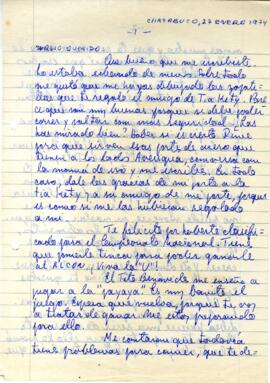 CHACABUCO, 27 ENERO 1974
- 1 -
SERGIO QUERIDO:
Que bueno que me escribiste.
Lo estaba echando de menos. Sobre todo
me gustó que me hayas dibujado las zapati-
llas que te regaló el amigo de Tía Kety. Pare-
ce que son muy buenas porque se debe poder
correr y saltar con más seguridad. ¿Las
has mirado bien? Haber si es cierto. Dime
para qué sirven esas parte de acero que
tienen a los lados. Averigua, conversa con
la mamá de eso y me escribes. En todo
caso, dale las gracias de mi parte a la
tía Kety y a su amigo de mi parte, porque
es como si me las hubieran regalado
a mi.
Te felicito por haberte clasifi-
cado para el Campeonato Nacional. Tiene
que ponerle tinca para poder ganarle
al ¡Viva la "U"!
El Tito me enseñó a
jugar a la "payaya". Es muy bonito el
juego. Espera que vuelva, porque te voy
a tratar de ganar. Me estoy preparando
para ello.
Me contaron que todavía
tiene problemas para comer, que te de-